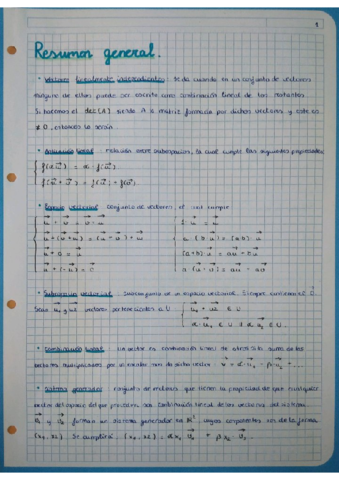 1
Resumen general.
· Vectores linealmente independientes: se da cuando en un conjunto de vectores
ninguno de ellos puede ser escrito como combinación lineal de los restantes.
Si hacemos el det(A) siendo A la matriz formada por dichos vectores y este es
≠ 0, entonces lo serán.
· Aplicación lineal: relación entre subespacios, la cual cumple las siguientes propiedades
f(α u) = α · f(u)
f(u + v) = f(u) + f(v)
· Espacio vectorial: conjunto de vectores, el cual cumple
u + v = v + u
1 · u = u
u + (v + w) = (u + v) + w
a (b u) = (ab) u
u + 0 = u
(a+b) u = au + bu
u + (-u) = 0
a (u + v) = au + av
· Subespacio vectorial: subconjunto de un espacio vectorial. Siempre contiene el 0.
Sean u₁ y u₂ vectores pertenecientes a U
u₁ + u₂ ∈ U
α u₁ ∈ U
· Combinación lineal: un vector es combinación lineal de otros si la suma de los
vectores multiplicados por un escalar nos da dicho vector
· Sistema generador: conjunto de vectores que tienen la propiedad de que cualquier
vector del espacio del que procedan, sea combinación lineal de los vectores del sistema.
y forman un sistema generador en R² cuyas componentes son de la forma
(x₁, x₂). Se cumplirá: (x₁, x₂) =